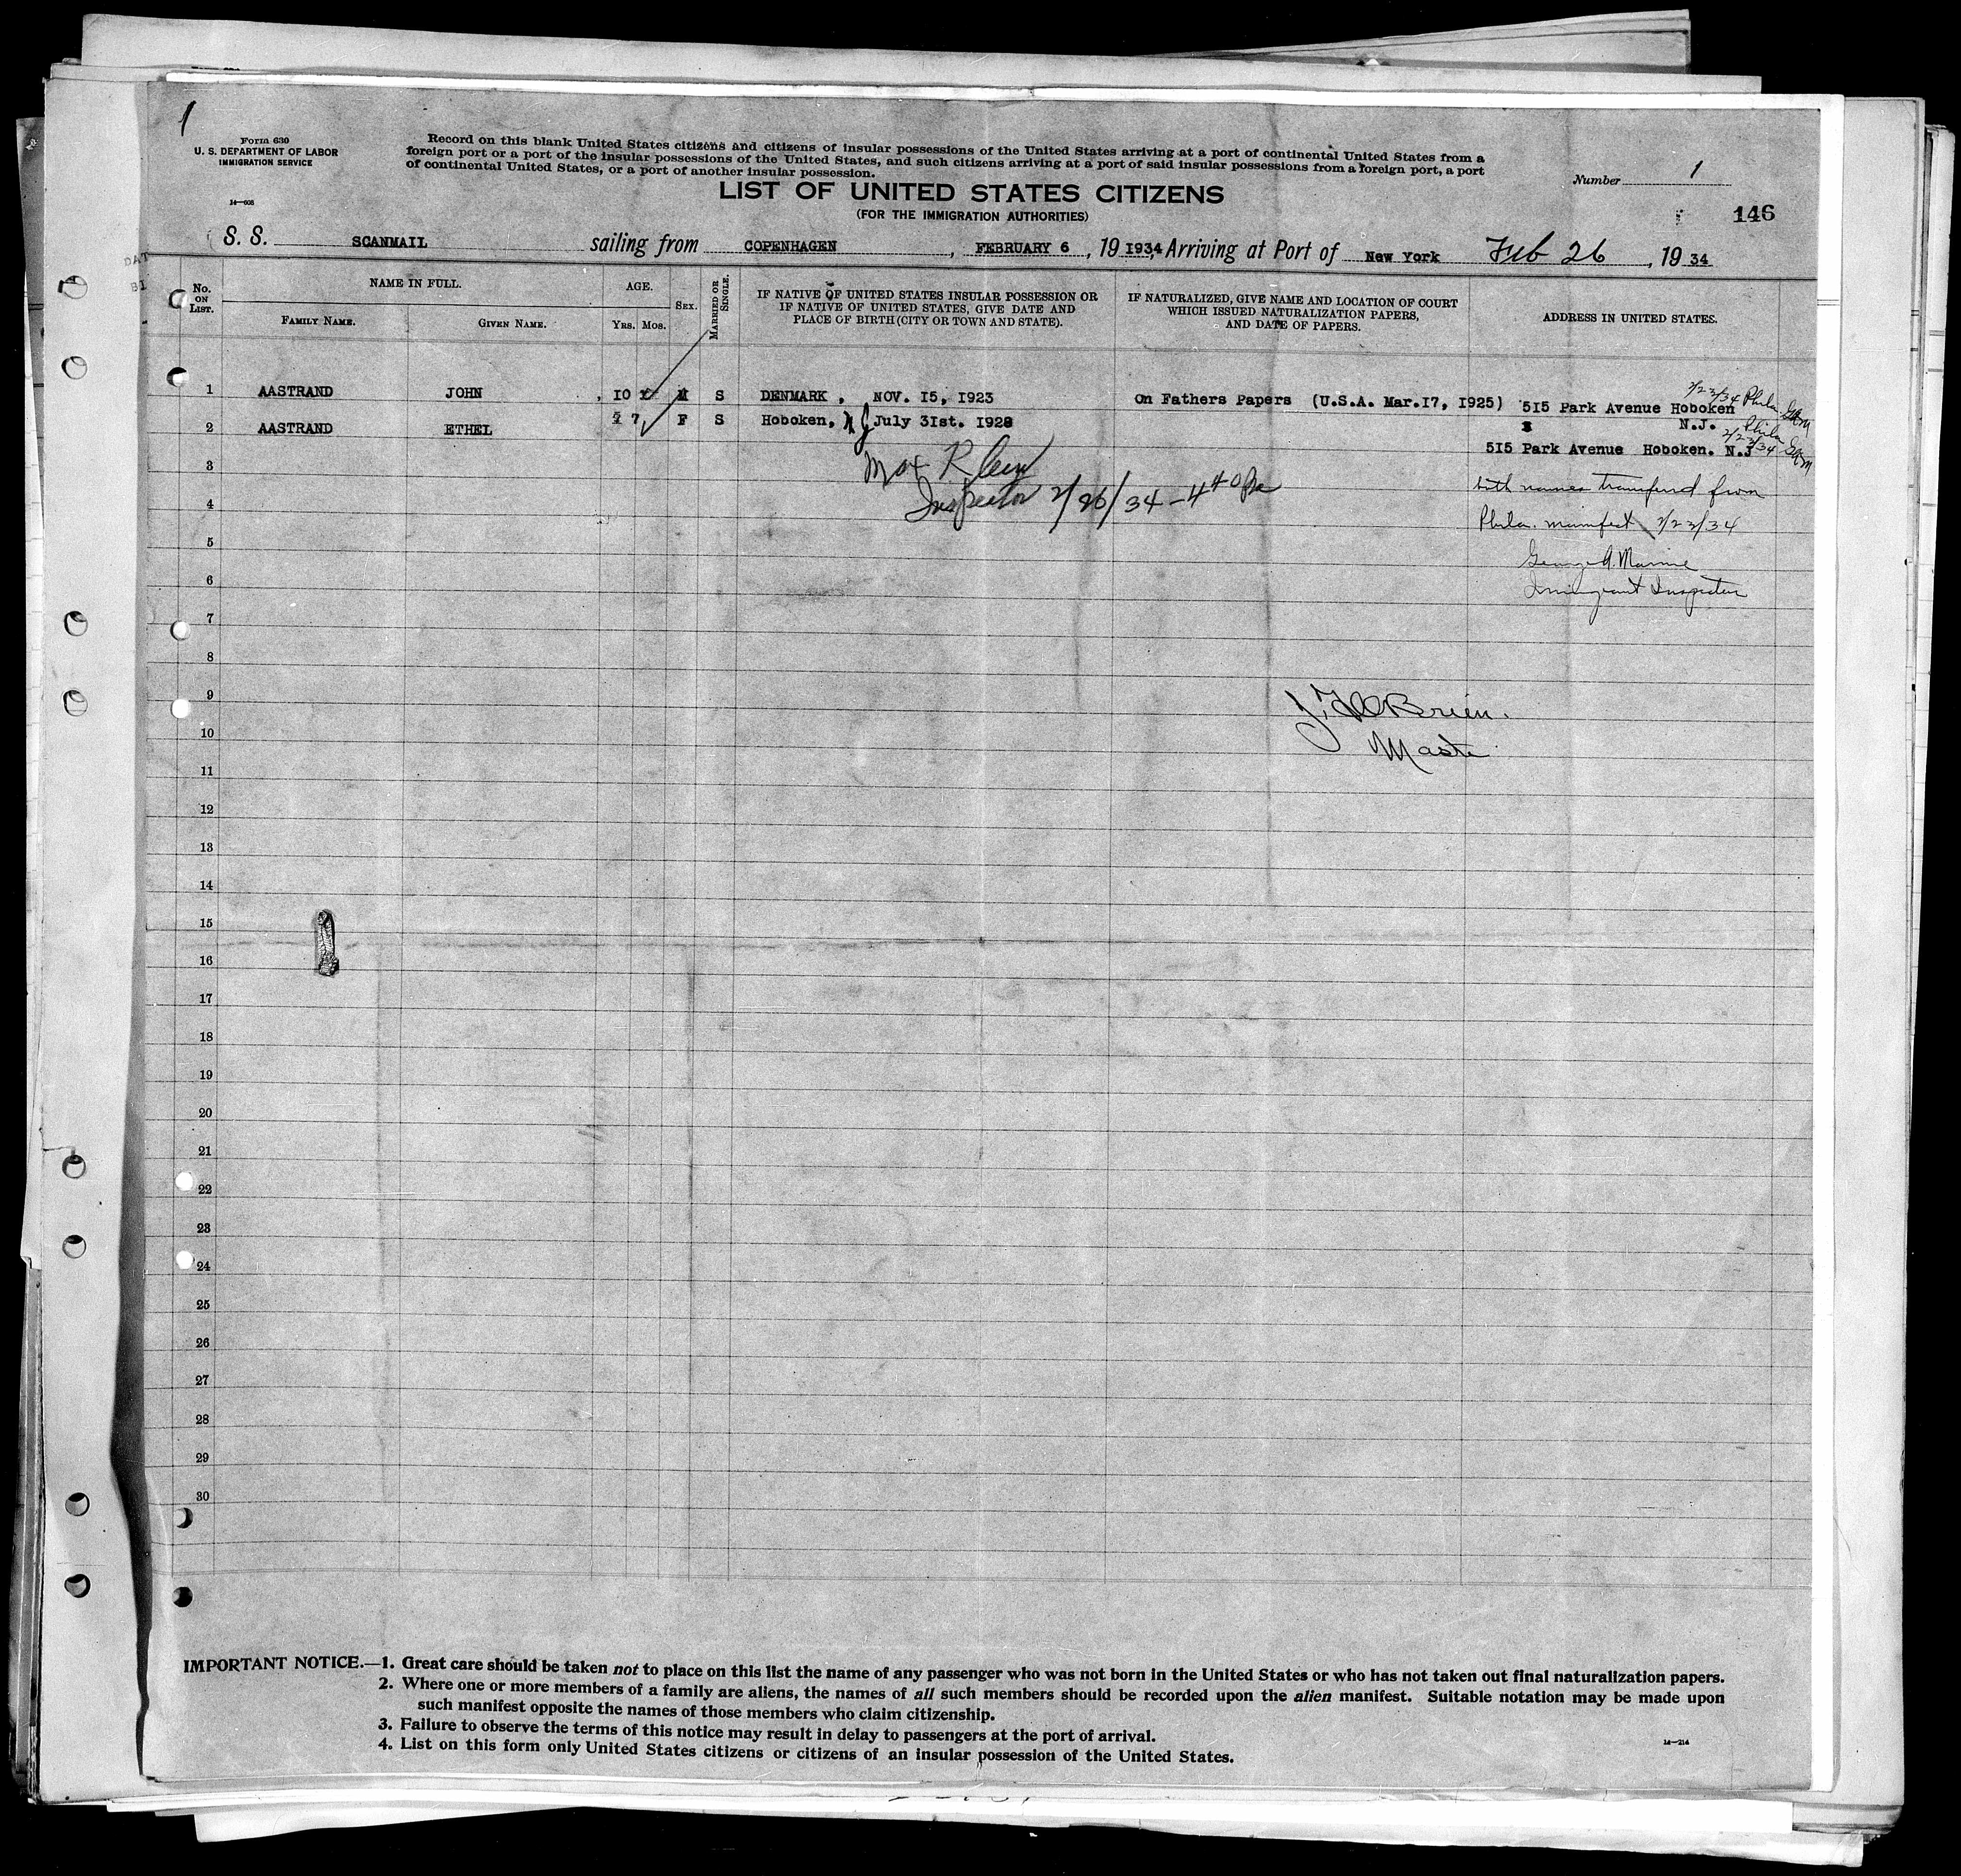 1
Form 630
U. S. DEPARTMENT OF LABOR
IMMIGRATION SERVICE
14—608
Record on this blank United States citizens and citizens of insular possessions of the United States arriving at a port of continental United States from a
foreign port or a port of the insular possessions of the United States, and such citizens arriving at a port of said insular possessions from a foreign port, a port
of continental United States, or a port of another insular possession.
LIST OF UNITED STATES CITIZENS
(FOR THE IMMIGRATION AUTHORITIES)
Number 1
146
S. S. SCANMAIL sailing from COPENHAGEN, FEBRUARY 6, 19 1934, Arriving at Port of New York Feb 26, 19 34
No. ON LIST.
NAME IN FULL.
FAMILY NAME.
GIVEN NAME.
AGE.
YRS. MOS.
SEX.
MARRIED OR SINGLE.
IF NATIVE OF UNITED STATES INSULAR POSSESSION OR
IF NATIVE OF UNITED STATES, GIVE DATE AND
PLACE OF BIRTH (CITY OR TOWN AND STATE).
IF NATURALIZED, GIVE NAME AND LOCATION OF COURT
WHICH ISSUED NATURALIZATION PAPERS,
AND DATE OF PAPERS.
ADDRESS IN UNITED STATES.
2/23/34 Phila. GAM
1 AASTRAND JOHN 10 M S DENMARK, NOV. 15, 1923 On Fathers Papers (U.S.A. Mar.17, 1925) 515 Park Avenue Hoboken
N.J.
Phila 2/23/34 GAM
2 AASTRAND ETHEL 7 F S Hoboken, NJ July 31st. 1928
515 Park Avenue Hoboken. N.J
3
Max Klein
Inspector 2/26/34 - 4 40 Pm
both names transferred from
4
Phila. manifest 2/23/34
5
George A. Marine
6
Immigrant Inspector
7
8
9
J. F. O'Brien.
10
Master
11
12
13
14
15
16
17
18
19
20
21
22
23
24
25
26
27
28
29
30
IMPORTANT NOTICE.—1. Great care should be taken not to place on this list the name of any passenger who was not born in the United States or who has not taken out final naturalization papers.
2. Where one or more members of a family are aliens, the names of all such members should be recorded upon the alien manifest. Suitable notation may be made upon
such manifest opposite the names of those members who claim citizenship.
3. Failure to observe the terms of this notice may result in delay to passengers at the port of arrival.
4. List on this form only United States citizens or citizens of an insular possession of the United States.
14—214